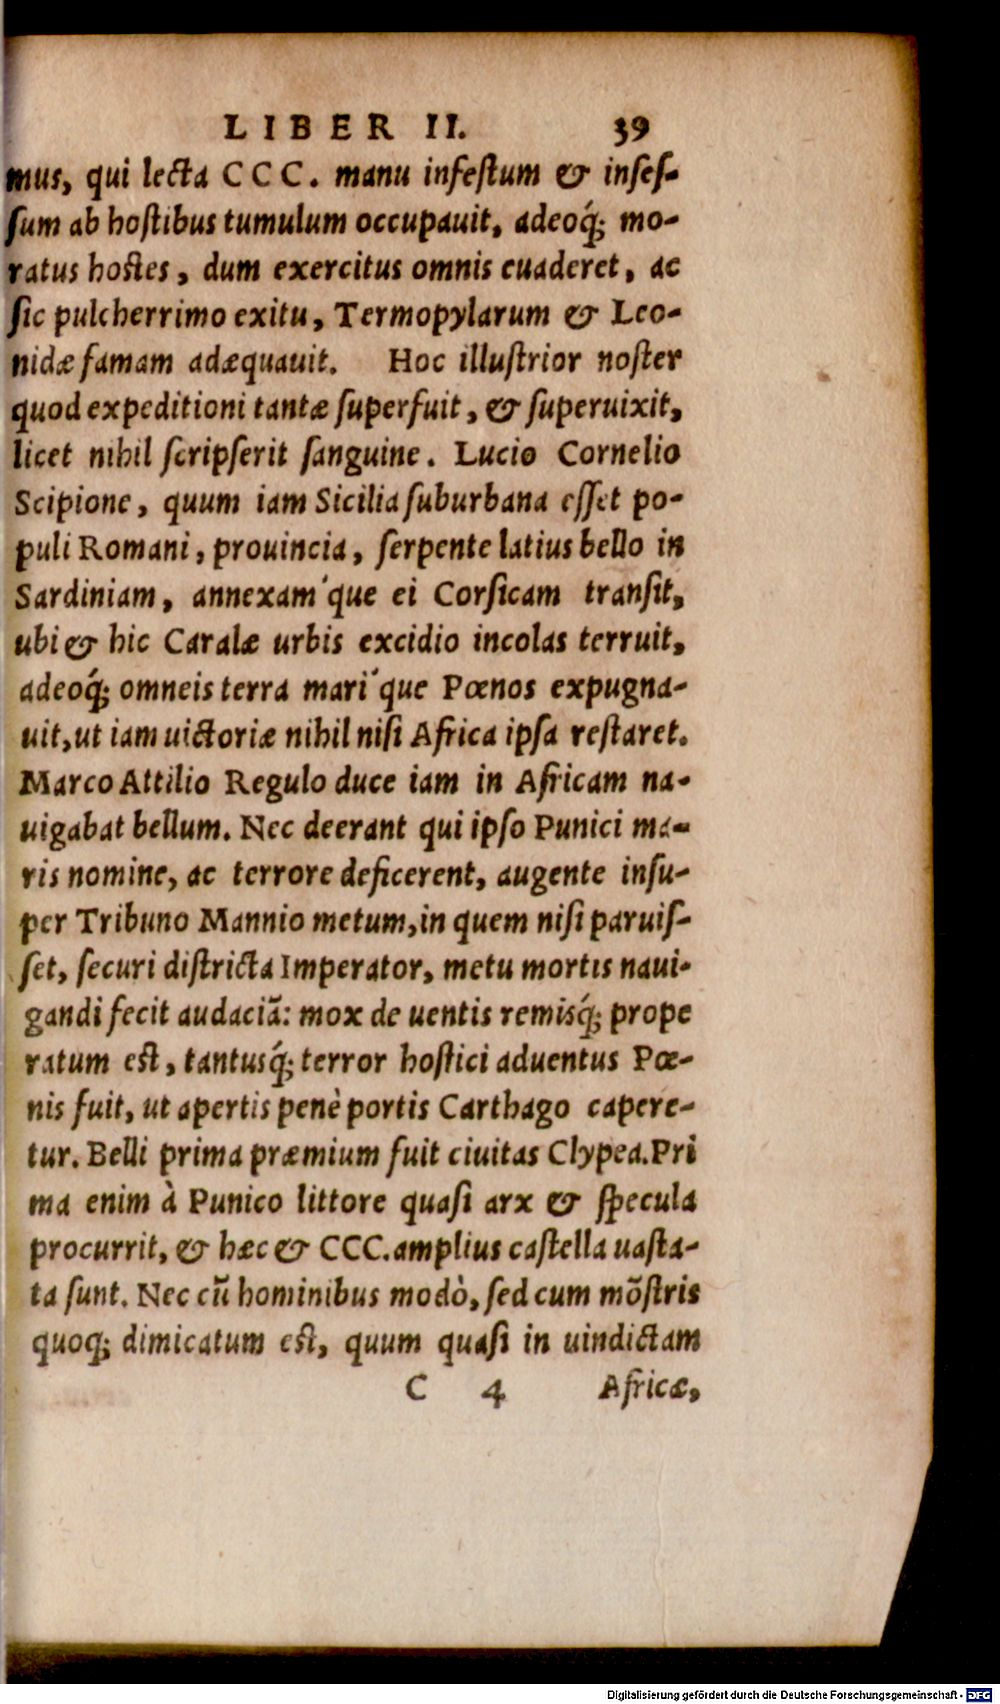 LIBER II. 39
mus, qui lecta CCC. manu infeſtum & inſeſ-
ſum ab hoſtibus tumulum occupauit, adeoq́; mo-
ratus hoſtes, dum exercitus omnis euaderet, ac
ſic pulcherrimo exitu, Termopylarum & Leo-
nidæ famam adæquauit. Hoc illuſtrior noſter
quod expeditioni tantæ ſuperfuit, & ſuperuixit,
licet nihil ſcripſerit ſanguine. Lucio Cornelio
Scipione, quum iam Sicilia ſuburbana eſſet po-
puli Romani, prouincia, ſerpente latius bello in
Sardiniam, annexaḿque ei Corſicam tranſit,
ubi & hic Caralæ urbis excidio incolas terruit,
adeoq́; omneis terra maríque Pœnos expugna-
uit, ut iam uictoriæ nihil niſi Africa ipſa reſtaret.
Marco Attilio Regulo duce iam in Africam na-
uigabat bellum. Nec deerant qui ipſo Punici ma-
ris nomine, ac terrore deficerent, augente inſu-
per Tribuno Mannio metum, in quem niſi paruiſ-
ſet, ſecuri diſtricta Imperator, metu mortis naui-
gandi fecit audaciã: mox de uentis remisq́; prope
ratum eſt, tantusq́; terror hoſtici aduentus Pœ-
nis fuit, ut apertis penè portis Carthago capere-
tur. Belli prima præmium fuit ciuitas Clypea. Pri
ma enim à Punico littore quaſi arx & ſpecula
procurrit, & hæc & CCC. amplius caſtella uaſta-
ta ſunt. Nec cũ hominibus modò, ſed cum mõſtris
quoq; dimicatum eſt, quum quaſi in uindictam
C 4 Africæ,
Digitalisierung gefördert durch die Deutsche Forschungsgemeinschaft - DFG